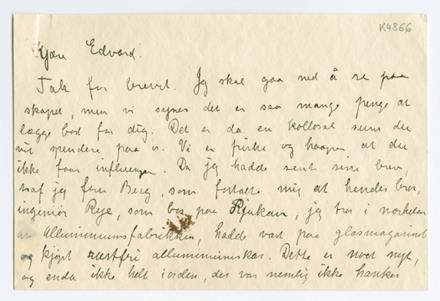 K4866
Kjære Edvard!
Tak for brevet. Jeg skal gaa ned å se paa
skapet, men vi synes det er saa mange penge at
lægge bort for dig. Det er da en kollosal sum du
vil spendere paa os. Vi er friske og haaper at du
ikke faar influenza. Da jeg hadde sent sine brev,
traf jeg fru Berg, som fortalte mig at hendes bror,
ingeniør Rye, som bor paa Rjukan, jeg tror i nærheden
av Alluminiumsfabrikken, hadde vært paa glasmagasinet
og kjøpt rustfri alluminiumskar. Dette er noe nyt,
og enda ikke helt iorden, der var nemlig ikke hanker